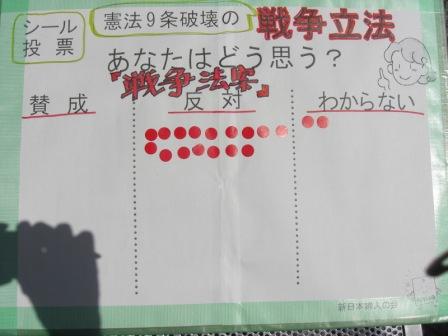 シール
投票
憲法9条破壊の
戦争立法
あなたはどう思う?
『戦争法案』
賛成
反対
わからない
新日本婦人の会